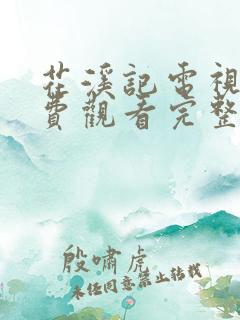 茌溪記電視
費觀看完整
殷嘯虎
未任同意禁止转载